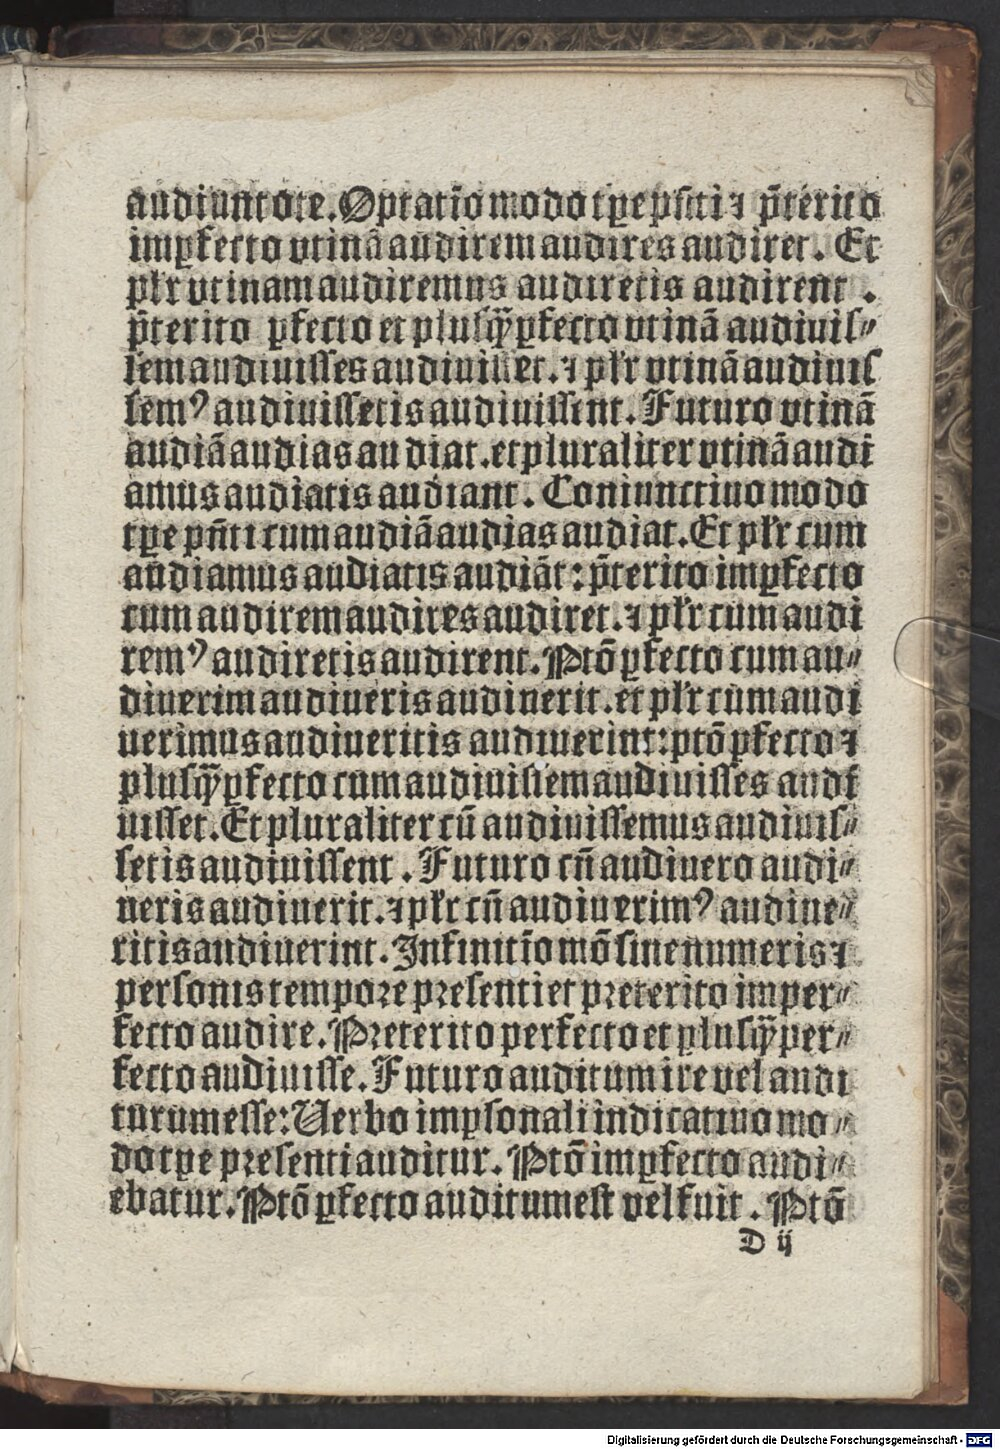 audiuntote. Optatiõ modo tꝑe pñti ⁊ p̃terito
imꝑfecto vtinã audirem audires audiret. Et
pl̃r vtinam audiremus audiretis audirent .
p̃terito ꝑfecto et plusq̃ꝑfecto vtinã audiuiſ⸗
ſem audiuiſſes audiuiſſet. ⁊ pl̃r vtinã audiuiſ
ſemꝰ audiuiſſetis audiuiſſent. Futuro vtinã
audiã audias audiat. et pluraliter vtinã audi
amus audiatis audiant. Coniunctiuo modo
tꝑe pñti cum audiã audias audiat. Et pl̃r cum
audiamus audiatis audiãt: p̃terito imꝑfecto
cum audirem audires audiret. ⁊ pl̃r cum audi
remꝰ audiretis audirent. Ptõ ꝑfecto cum au⸗
diuerim audiueris audiuerit. et pl̃r cum audi
uerimus audiueritis audiuerint: ptõ ꝑfecto ⁊
plusq̃ꝑfecto cum audiuiſſem audiuiſſes audi
uiſſet. Et pluraliter cũ audiuiſſemus audiuiſ⸗
ſetis audiuiſſent . Futuro cũ audiuero audi⸗
ueris audiuerit. ⁊ pl̃r cũ audiuerimꝰ audiue⸗
ritis audiuerint. Infinitĩo mõ ſine numeris ⁊
perſonis tempore preſenti et preterito imper⸗
fecto audire. Preterito perfecto et plusq̃per⸗
fecto audiuiſſe. Futuro auditum ire vel audi
turum eſſe: Uerbo imꝑſonali indicatiuo mo⸗
do tꝑe preſenti auditur. Ptõ imꝑfecto audi⸗
ebatur. Ptõ ꝑfecto auditum eſt vel fuit . Ptõ
D ij
Digitalisierung gefördert durch die Deutsche Forschungsgemeinschaft - DFG